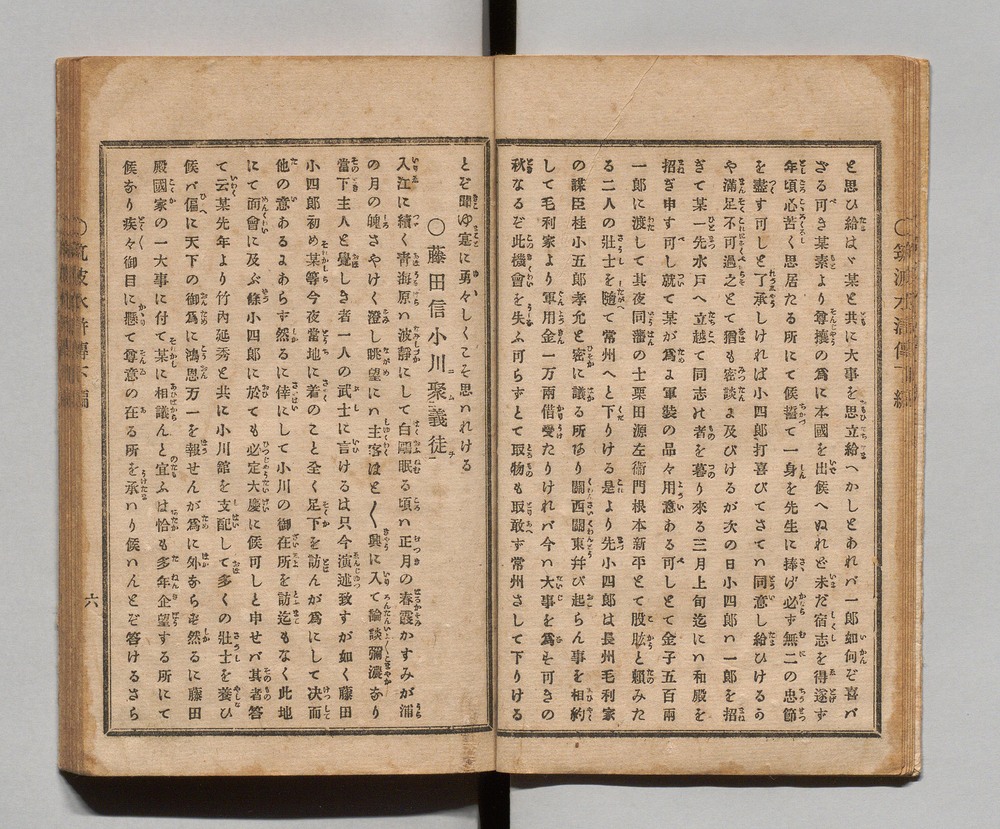 と思ひ給はゞ某と共に大事を思立給へかしとあれバ一郎如何ぞ喜バ
ざる可き某素より尊攘の爲に本國を出候へぬれど未だ宿志を得遂ず
年頃心苦く思居たる所にて候誓て一身を先生に捧げ必ず無二の忠節
を盡す可しと了承しければ小四郎打喜びてさてハ同意し給ひけるう
や滿足不可過之とて猶も密談よ及びけるが次の日小四郎ハ一郎を招
ぎて某一先水戸へ立越て同志の者を募り來る三月上旬迄にハ和殿を
招ぎ申す可し就て某が爲よ軍裝の品々用意ある可しとて金子五百兩
一郎に渡して其夜同藩の士栗田源左衞門根本新平とて股肱と頼みた
る二人の壯士を隨て常州へと下りける是より先小四郎は長州毛利家
の謀臣桂小五郎孝允と密に議る所あり關西關東幷び起らん事を相約
して毛利家より軍用金一万兩借受たりけれバ今ハ大事を爲も可きの
秋なるぞ此機會を失ふ可らずとて取物も取敢ず常州さして下りける
とぞ聞ゆ寔に勇々しくこそ思ハれける
〇藤田信小川聚義徒
入江に續く青海原ハ波靜にして白鷗眠る頃ハ正月の春霞かすみが浦
の月の魄さやけく澄し眺望にハ主客ほと〱興に入て論談彌濃あり
當下主人と覺しき者一人の武士に言けるは只今演述致すが如く藤田
小四郎初め某等今夜當地に着のこと全く足下を訪んが爲にして决而
他の意あるまあらず然るに倖にして小川の御在所を訪迄もなく此地
にて面會に及ぶ條小四郎に於ても必定大慶に候可しと申せバ其者答
て云某先年より竹內延秀と共に小川館を支配して多くの壯士を養ひ
候バ偏に天下の御爲に鴻恩万一を報せんが爲に外あらも然るに藤田
殿國家の一大事に付て某に相議んと宜ふは恰も多年企望する所にて
候あり疾々御目に懸て尊意の在る所を承ハり候ハんとぞ答けるさら
〇筑波水滸傳下編
〇筑波水滸傳下編
六